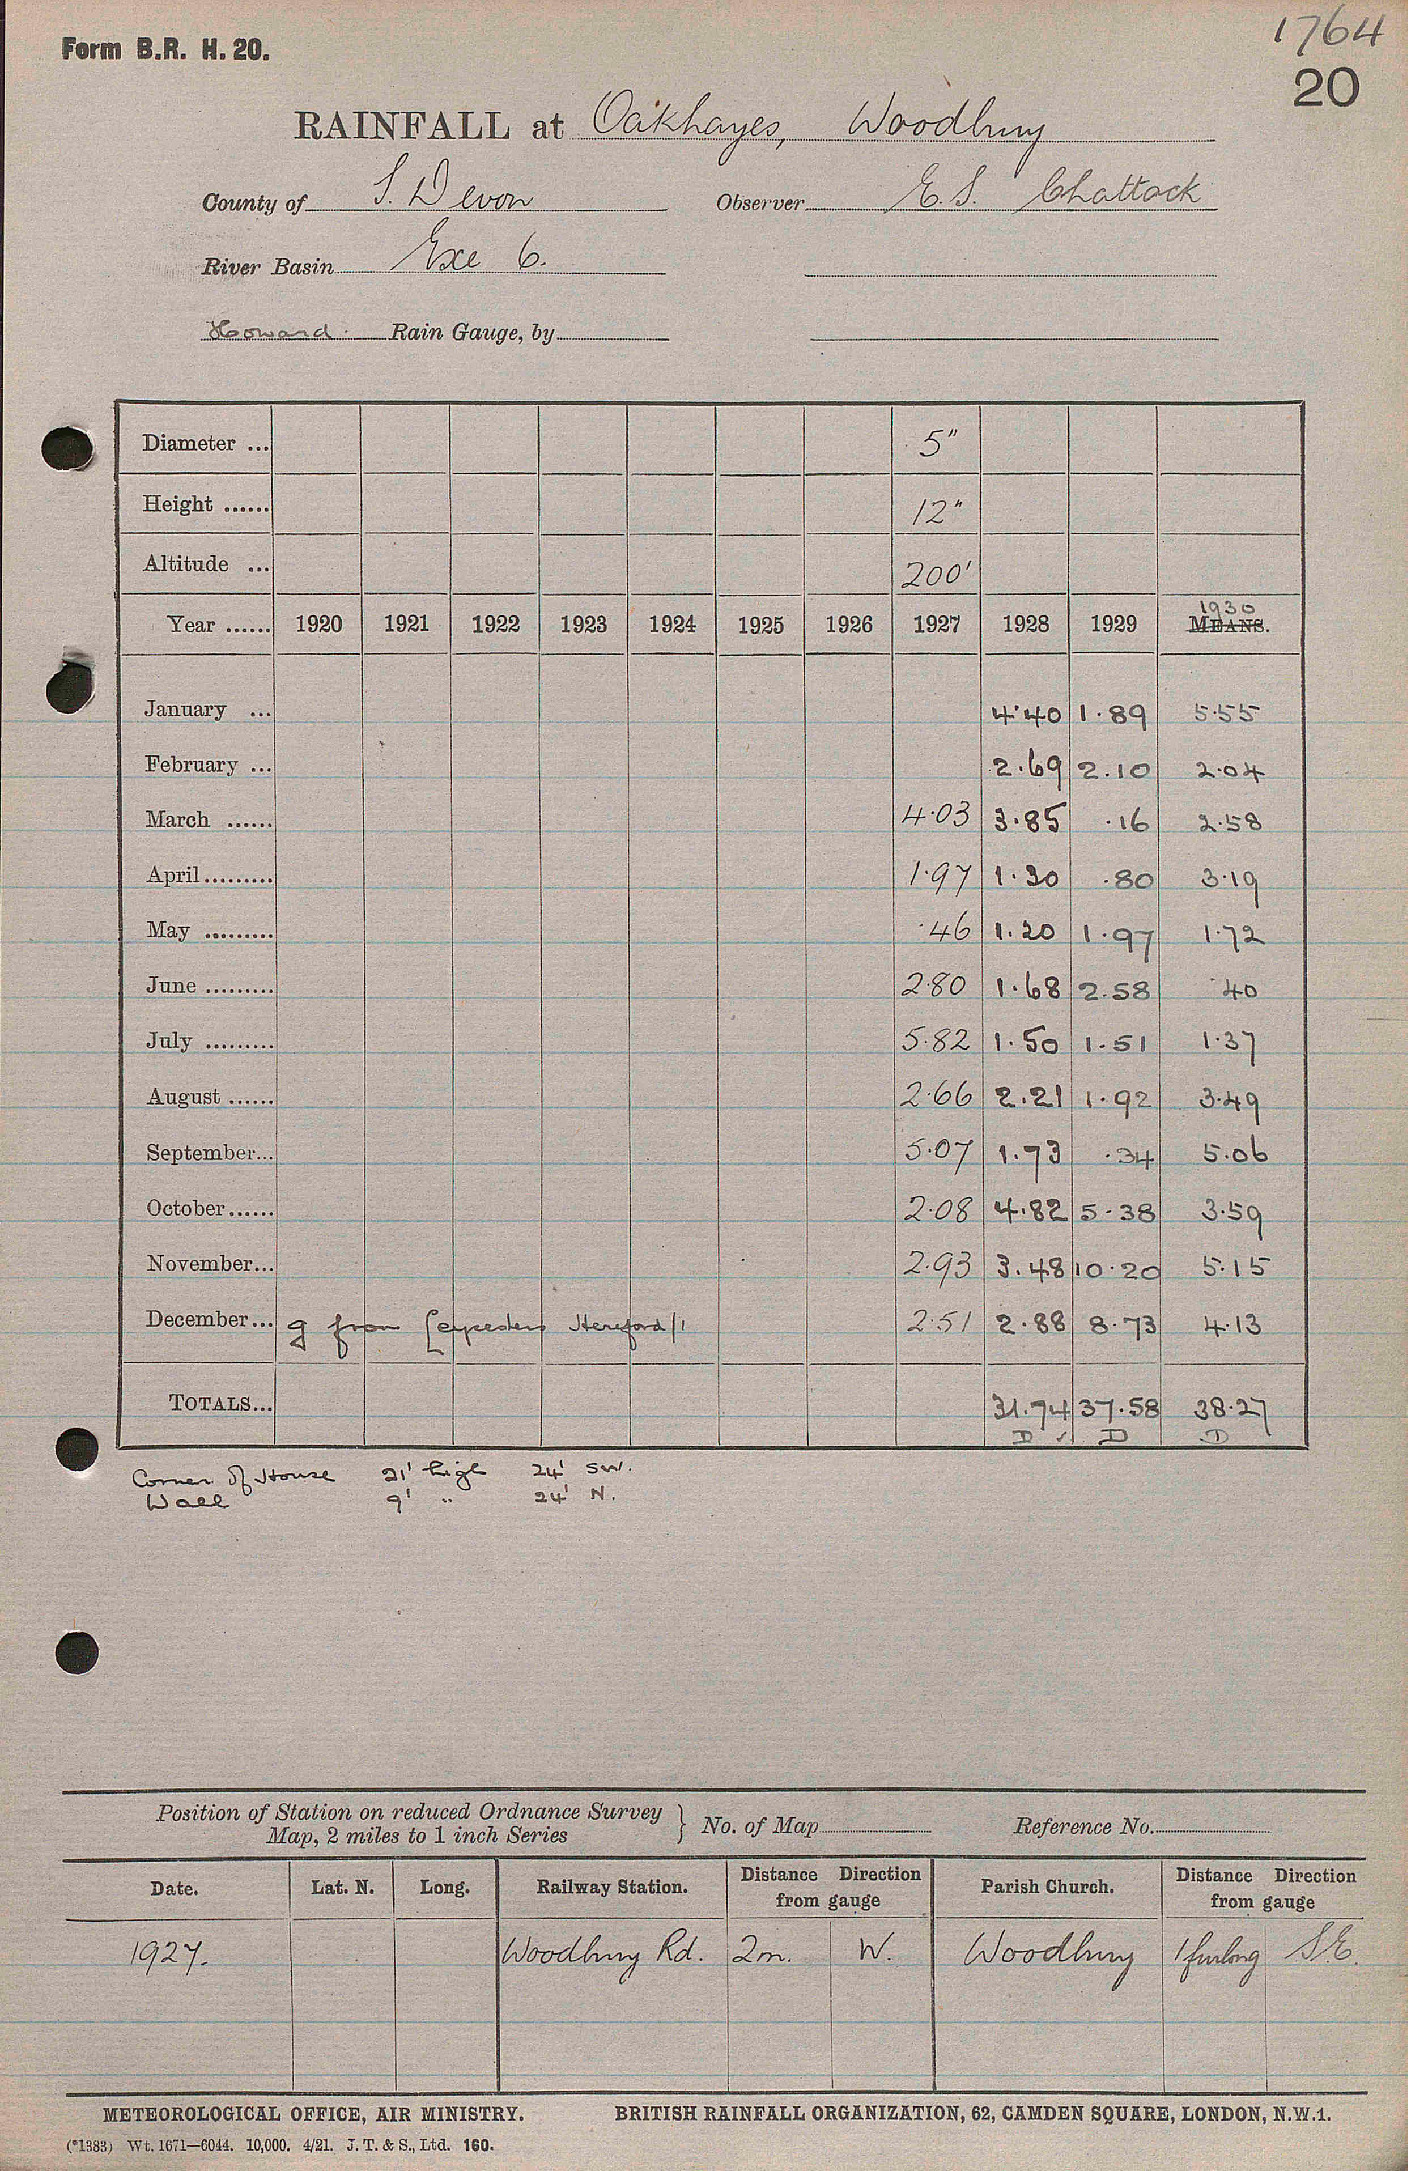 Form B.R. H. 20.
1764
20
RAINFALL at Oakhayes, Woodbury
County of S. Devon Observer E. S. Chattock
River Basin Exe 6.
Howard Rain Gauge, by
Diameter ... 5"
Height ...... 12"
Altitude ... 200'
Year ...... 1920 1921 1922 1923 1924 1925 1926 1927 1928 1929 1930 MEANS.
January ... 4.40 1.89 5.55
February ... 2.69 2.10 2.04
March ...... 4.03 3.85 .16 2.58
April ......... 1.97 1.30 .80 3.19
May ......... .46 1.20 1.97 1.72
June ......... 2.80 1.68 2.58 .40
July ......... 5.82 1.50 1.51 1.37
August ...... 2.66 2.21 1.92 3.49
September... 5.07 1.73 .34 5.06
October...... 2.08 4.82 5.38 3.59
November... 2.93 3.48 10.20 5.15
December... g from Hereford/1 2.51 2.88 8.73 4.13
TOTALS... 31.74 37.58 38.27
D ✓ D D
Corner of House 21' high 24' SW.
Wall 9' " 24' N.
Position of Station on reduced Ordnance Survey
Map, 2 miles to 1 inch Series } No. of Map Reference No.
Date. Lat. N. Long. Railway Station. Distance Direction from gauge Parish Church. Distance Direction from gauge
1927. Woodbury Rd. 2m. W. Woodbury 1 furlong S.E.
METEOROLOGICAL OFFICE, AIR MINISTRY. BRITISH RAINFALL ORGANIZATION, 62, CAMDEN SQUARE, LONDON, N.W.1.
(*1383) Wt. 1671—6044. 10,000. 4/21. J. T. & S., Ltd. 160.